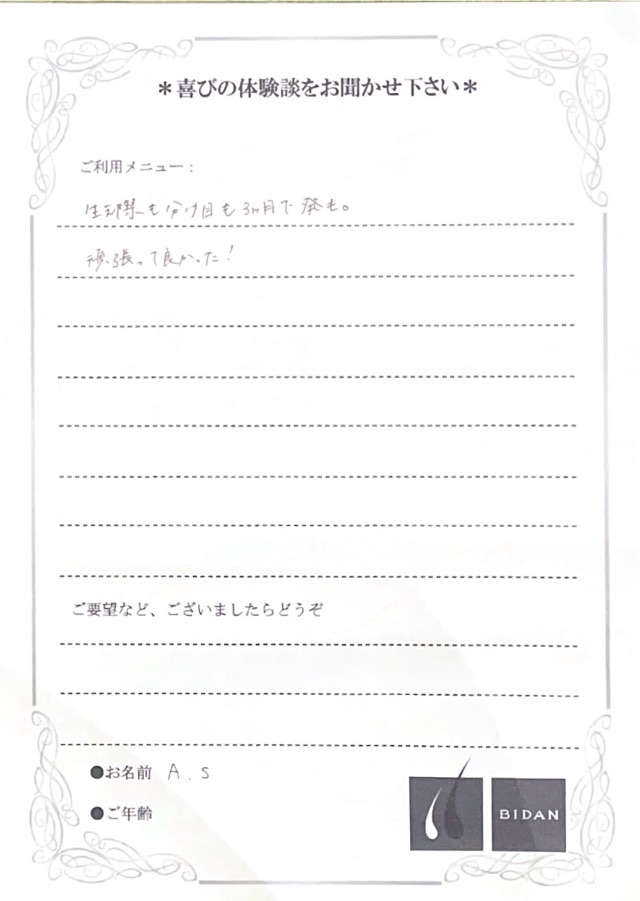 ＊喜びの体験談をお聞かせ下さい＊
ご利用メニュー：
生え際も分け目も3ヶ月で発毛。
頑張って良かった！
ご要望など、ございましたらどうぞ
●お名前 A.S
●ご年齢
BIDAN